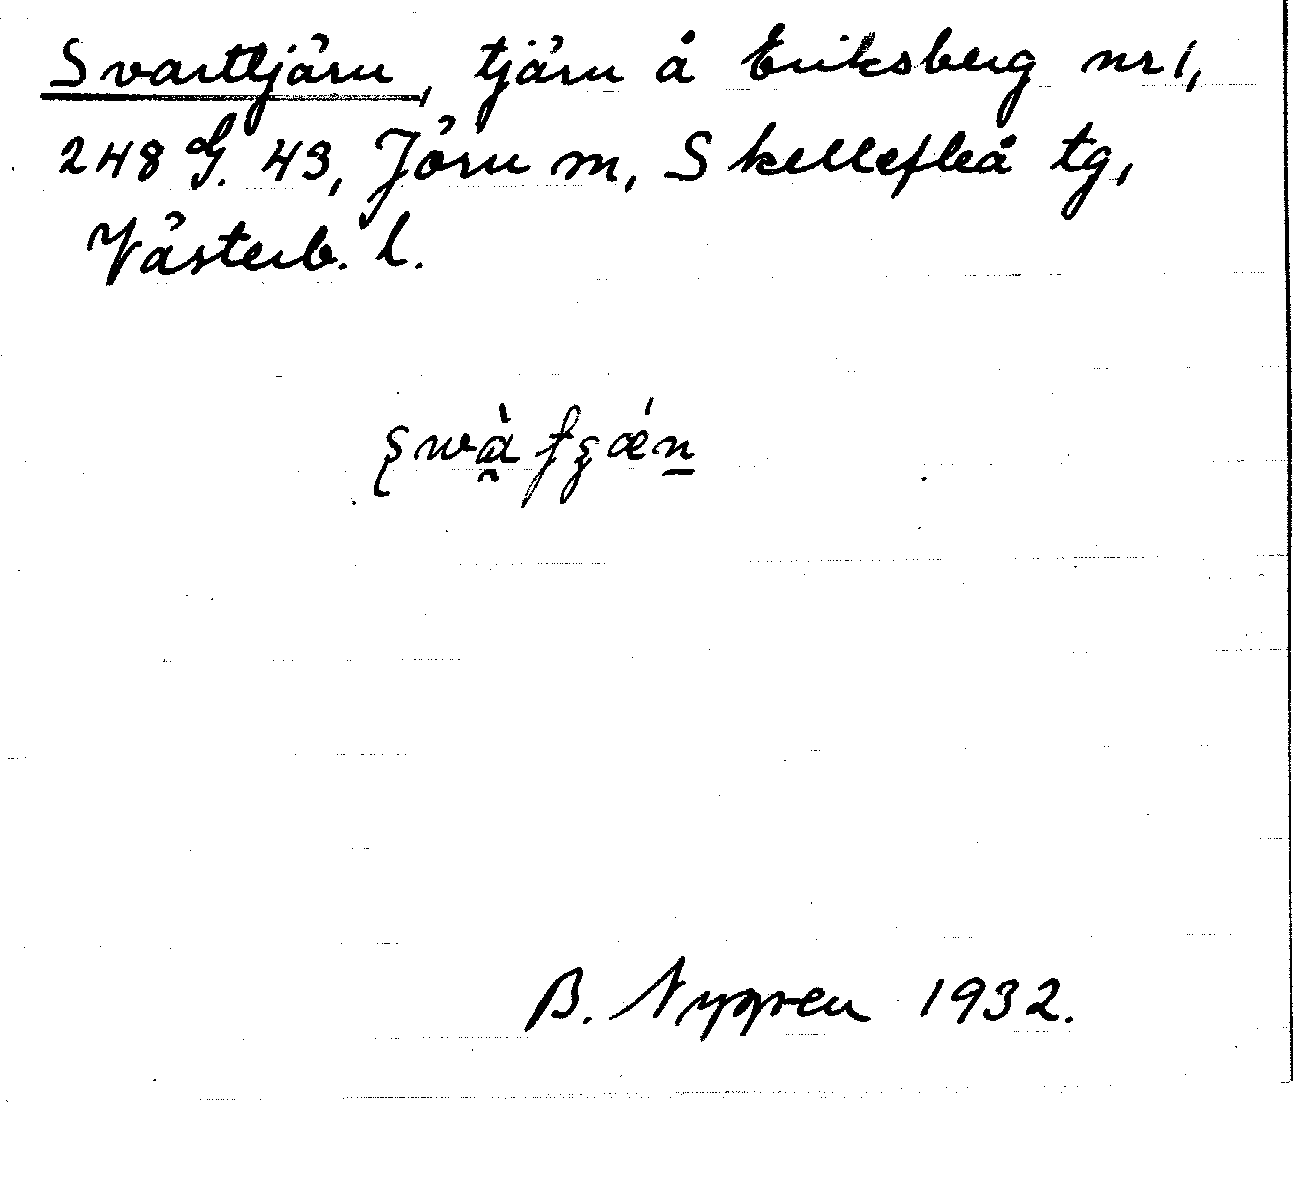 Svarttjärn, tjärn å Eriksberg nr 1,
248 G. 43, Jörn m, Skellefteå tg,
Västerb. l.
B. Nygren 1932.